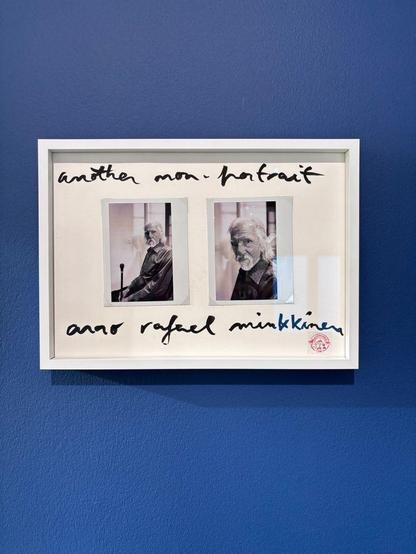 another non-portrait
arno rafael minkkinen